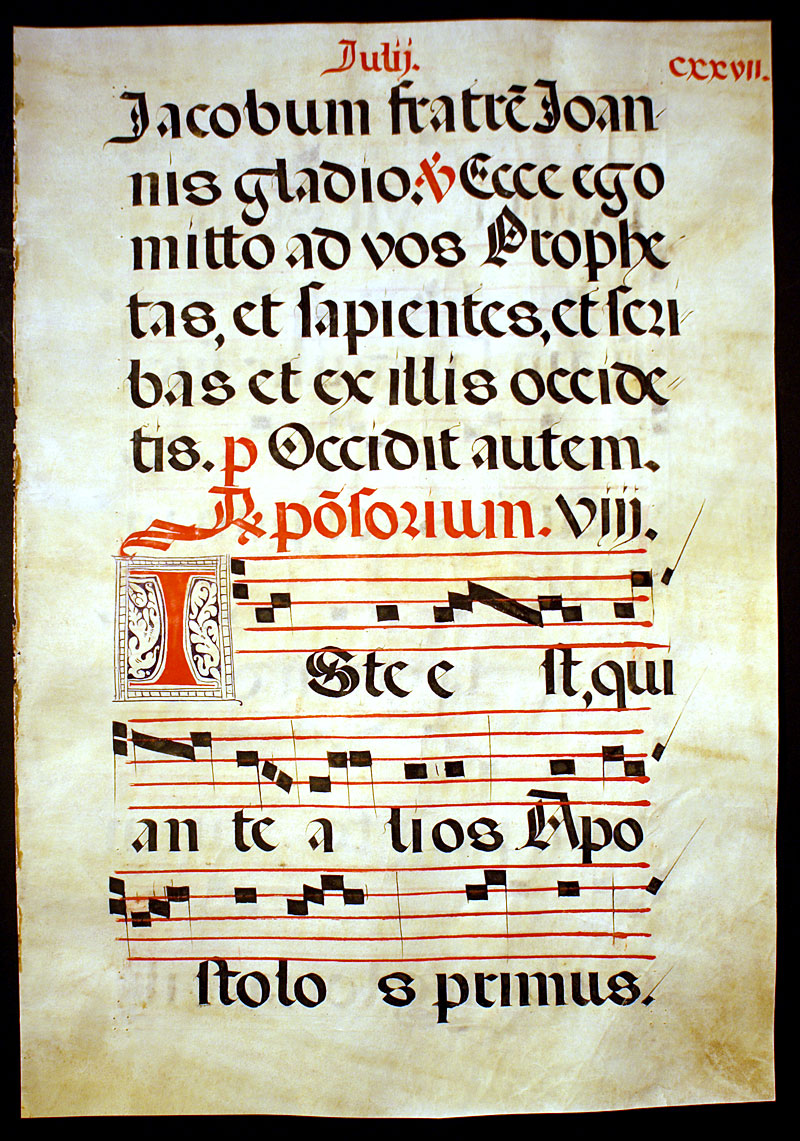 Julij.
cxxvii.
Jacobum fratrē Joan-
nis gladio: ℣ Ecce ego
mitto ad vos Prophe-
tas, et sapientes, et scri-
bas et ex illis occide-
tis. p Occidit autem.
℟ põsorium. viij.
ISte est, qui
ante alios Apo
stolos primus.